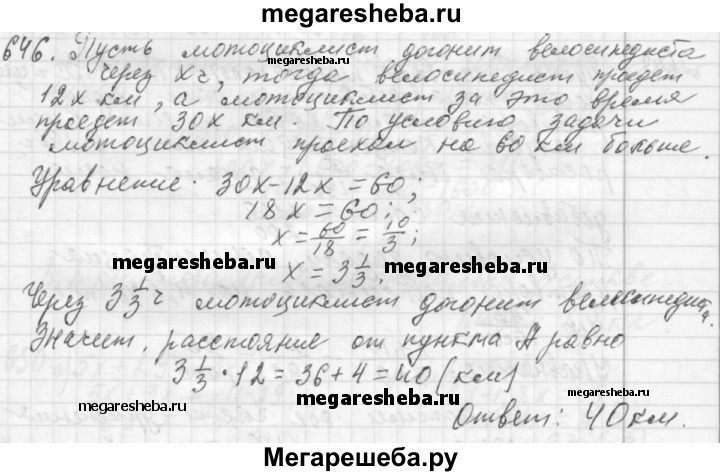 megaresheba.ru
646. Пусть мотоциклист догонит велосипедиста
через x ч, тогда велосипедист проедет
12x км, а мотоциклист за это время
проедет 30x км. По условию задачи
мотоциклист проехал на 60 км больше.
Уравнение: 30x-12x=60;
18x=60;
x=60/18=10/3;
megaresheba.ru megaresheba.ru
x=3 1/3.
Через 3 1/3 ч мотоциклист догонит велосипедиста.
Значит, расстояние от пункта А равно
3 1/3 · 12 = 36 + 4 = 40 (км)
megaresheba.ru megaresheba.ru
Ответ: 40 км.
Мегарешеба.ру